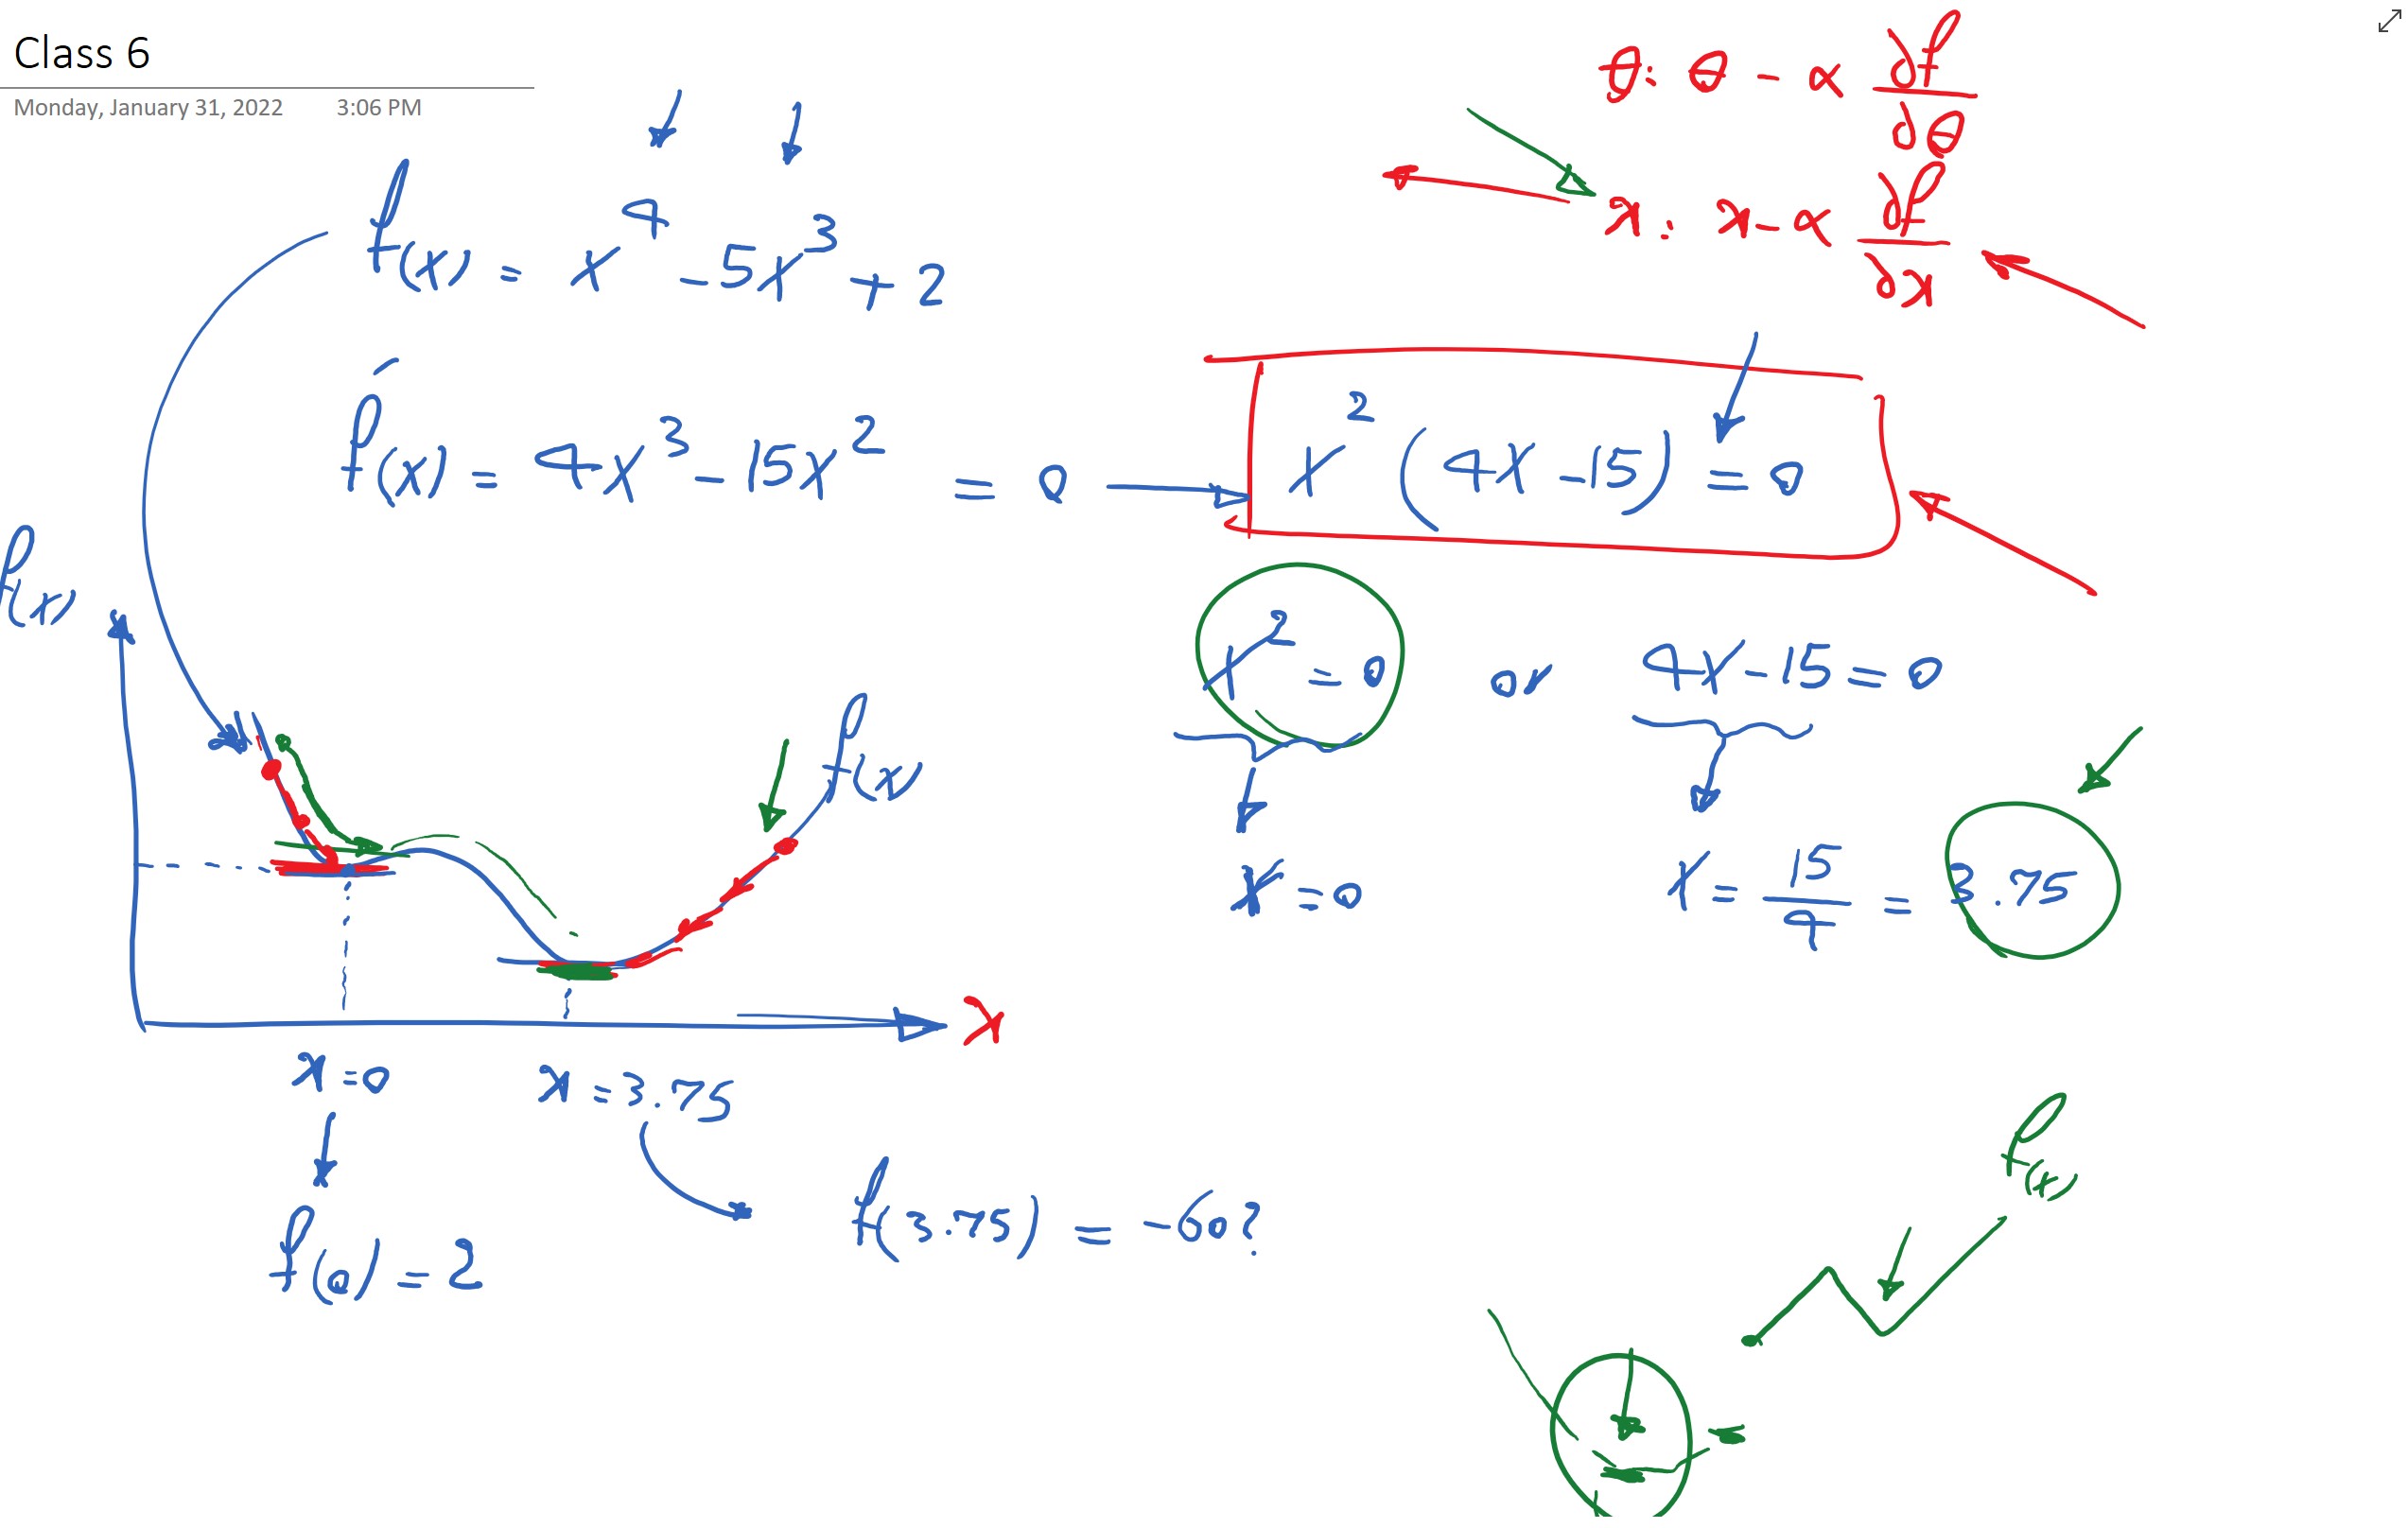 Class 6
Monday, January 31, 2022 3:06 PM
θ: θ - α df/dθ
x: x - α df/dx
f(x) = x⁴ - 5x³ + 2
f'(x) = 4x³ - 15x² = 0
x² (4x - 15) = 0
f(x)
x² = 0 or 4x - 15 = 0
f(x)
x = 0
x = 15/4 = 3.75
x
x = 0
x = 3.75
f(x)
f(3.75) = -60?
f(0) = 2